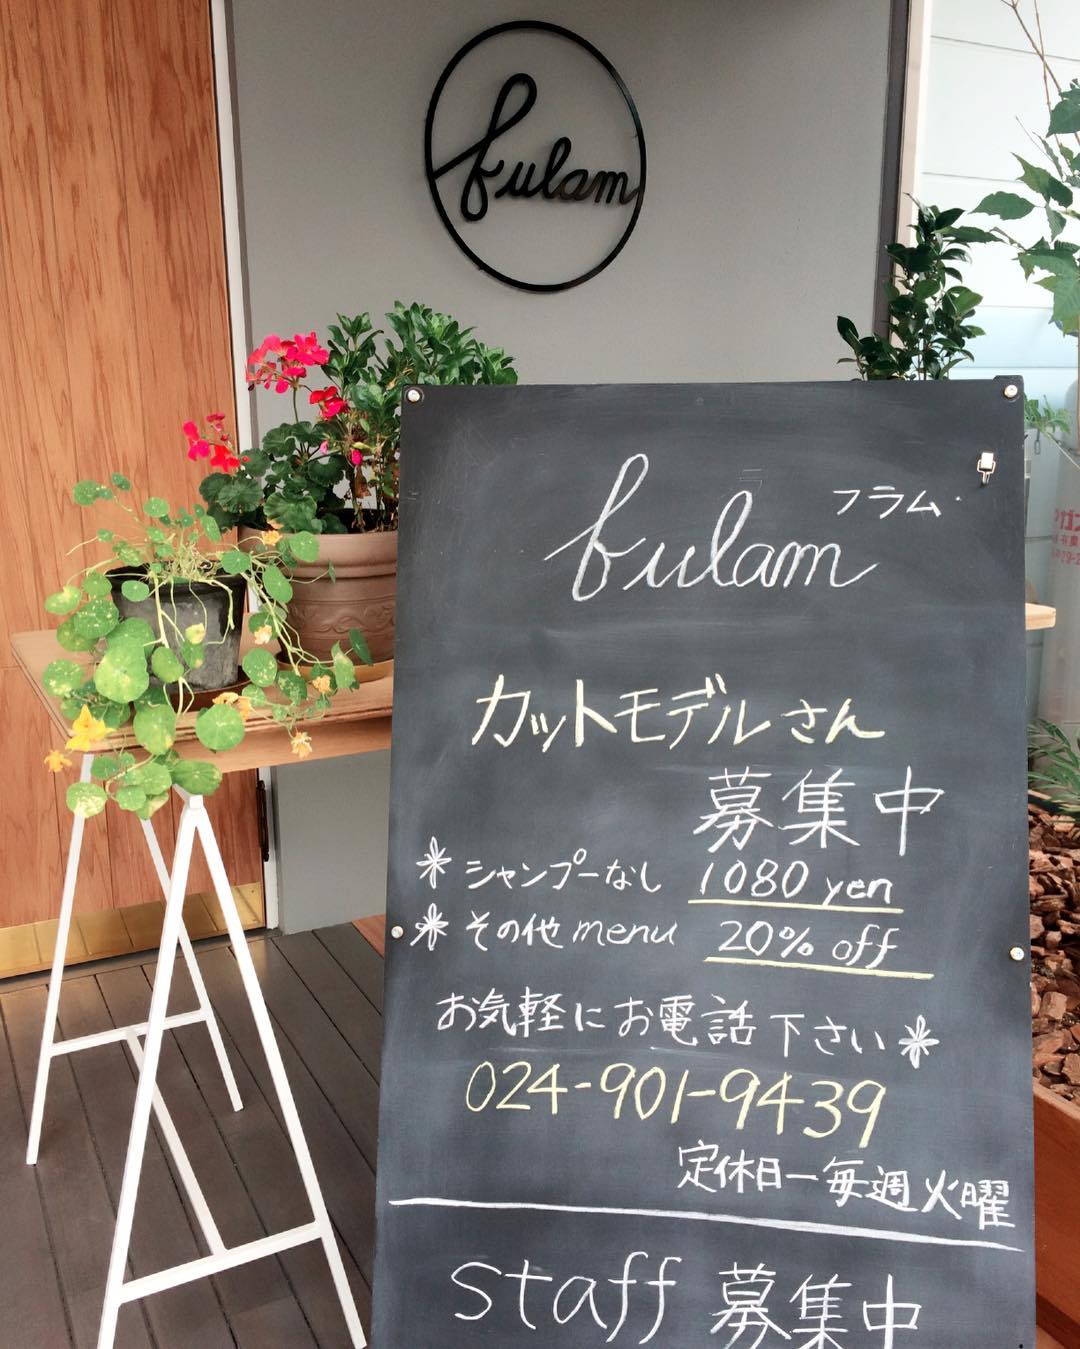 fulam
フラム
fulam
カットモデルさん
募集中
* シャンプーなし 1080 yen
* その他 menu 20% off
お気軽にお電話下さい*
024-901-9439
定休日ー毎週火曜
staff 募集中